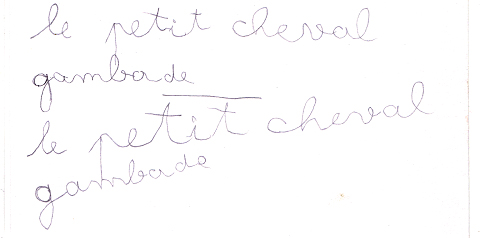 le petit cheval
gambade
le petit cheval
gambade